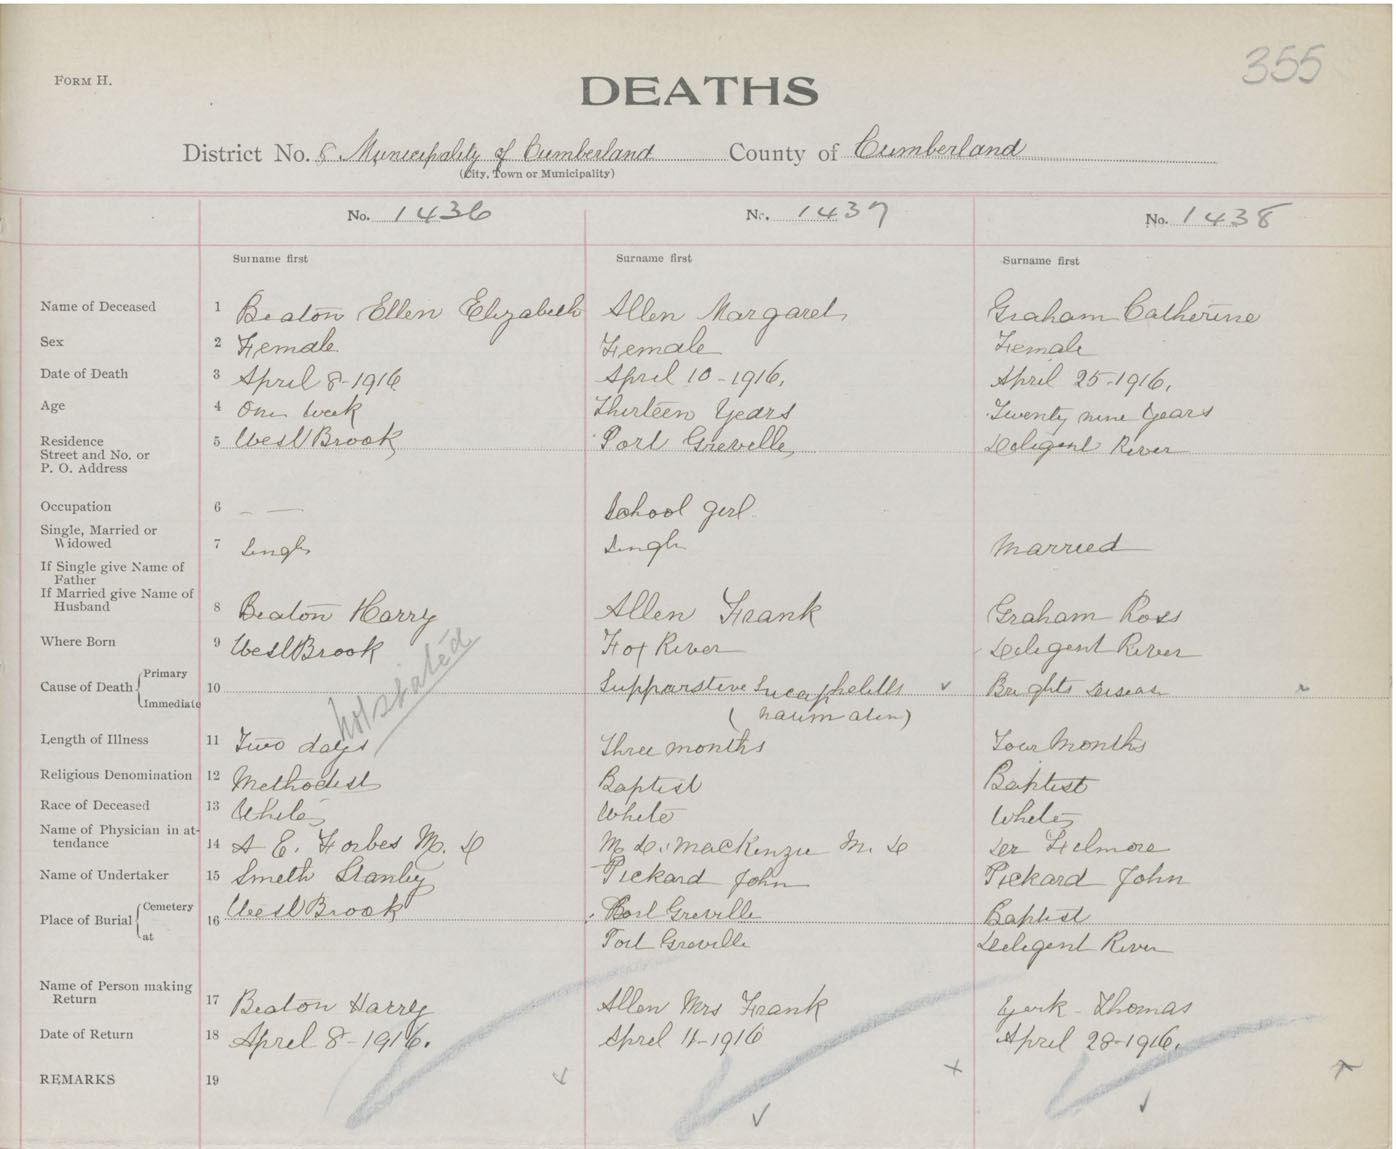 355
FORM H.
DEATHS
District No. 8 Municipality of Cumberland County of Cumberland
(City, Town or Municipality)
No. 1436 No. 1437 No. 1438
Surname first Surname first Surname first
Name of Deceased 1 Beaton Ellen Elizabeth Allen Margaret Graham Catherine
Sex 2 Female Female Female
Date of Death 3 April 8-1916 April 10-1916, April 25-1916,
Age 4 One week Thirteen Years Twenty nine Years
Residence
Street and No. or
P. O. Address
5 West Brook Port Greville Deligent River
Occupation 6 — — School girl
Single, Married or
Widowed 7 Single Single Married
If Single give Name of
Father
If Married give Name of
Husband 8 Beaton Harry Allen Frank Graham Ross
Where Born 9 West Brook Fox River Deligent River
Cause of Death { Primary
Immediate
10 not stated Brights Disease
Length of Illness 11 Two days Three months Four Months
Religious Denomination 12 Methodist Baptist Baptist
Race of Deceased 13 White White White
Name of Physician in at-
tendance 14 A E. Forbes M. D M D. MacKenzie M. D Dr Filmore
Name of Undertaker 15 Smith Stanley Pickard John Pickard John
Place of Burial { Cemetery
at
16 West Brook Port Greville Baptist
Port Greville Deligent River
Name of Person making
Return 17 Beaton Harry Allen Mrs Frank York Thomas
Date of Return 18 April 8-1916. April 11-1916 April 28-1916,
REMARKS 19